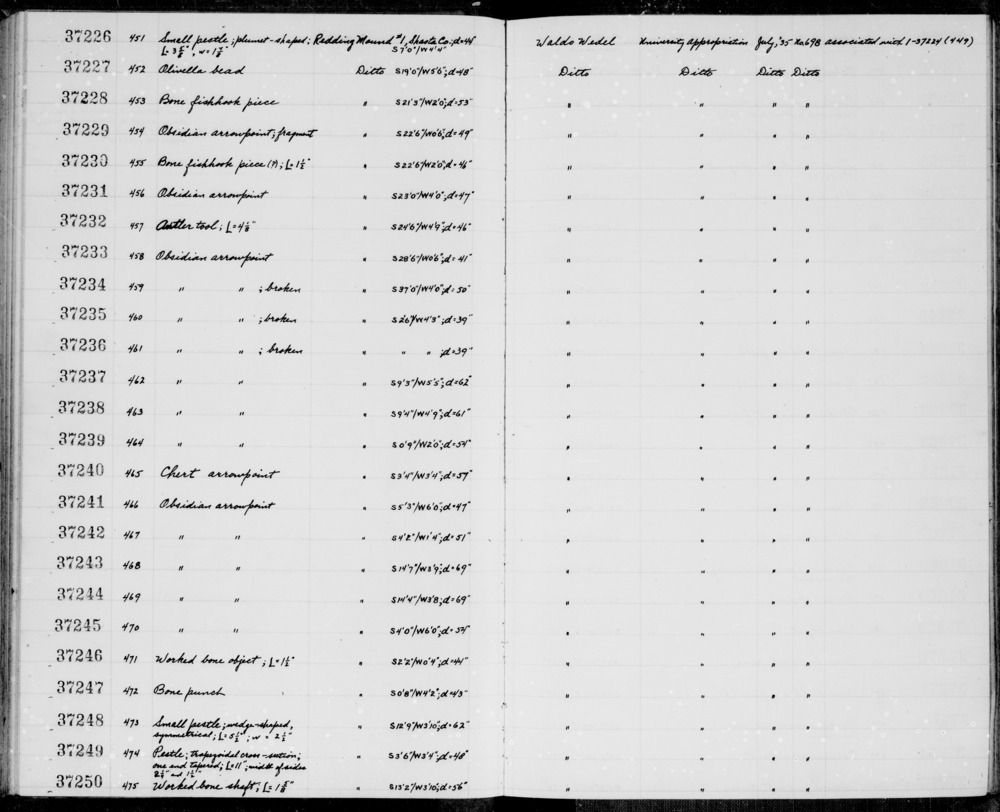 37226 451 Small pestle; plummet-shaped; Redding Mound #1, Shasta Co.; d=44" Waldo Wedel University Appropriation July, '35 No 698 associated with 1-37224 (449)
S7'0"/W4'4"
37227 452 Olivella bead Ditto S19'0"/W5'6"; d=48" Ditto Ditto Ditto Ditto
37228 453 Bone fishhook piece " S21'3"/W2'0"; d=53" " " " "
37229 454 Obsidian arrowpoint; fragment " S22'6"/W0'6"; d=49" " " " "
37230 455 Bone fishhook piece (?); L=1½" " S22'6"/W2'0"; d=46" " " " "
37231 456 Obsidian arrowpoint " S23'0"/W4'0"; d=47" " " " "
37232 457 Antler tool; " S24'6"/W4'9"; d=46" " " " "
37233 458 Obsidian arrowpoint " S28'6"/W0'6"; d=41" " " " "
37234 459 " " ; broken " S37'0"/W4'0"; d=50" " " " "
37235 460 " " ; broken " d=39" " " " "
37236 461 " " ; broken " " " ; d=39" " " " "
37237 462 " " " S9'3"/W5'5"; d=62" " " " "
37238 463 " " " S9'4"/W4'9"; d=61" " " " "
37239 464 " " " S0'9"/W2'0"; d=54" " " " "
37240 465 Chert arrowpoint " S3'4"/W3'4"; d=57" " " " "
37241 466 Obsidian arrowpoint " S5'3"/W6'0"; d=47" " " " "
37242 467 " " " S4'2"/W1'4"; d=51" " " " "
37243 468 " " " S14'7"/W3'9"; d=69" " " " "
37244 469 " " " S14'4"/W3'8"; d=69" " " " "
37245 470 " " " S4'0"/W6'0"; d=54" " " " "
37246 471 Worked bone object; " S2'2"/W0'4"; d=44" " " " "
37247 472 Bone punch " S0'8"/W4'2"; d=43" " " " "
37248 473 Small pestle; wedge-shaped, " S12'9"/W3'10"; d=62" " " " "
symmetrical; L=5½"; w=2½"
37249 474 Pestle; trapezoidal cross-section; " S3'6"/W3'4"; d=48" " " " "
one end tapered; L=11"; width of sides
2½" and 1½"
37250 475 Worked bone shaft; " S15'2"/W3'10"; d=56" " " " "